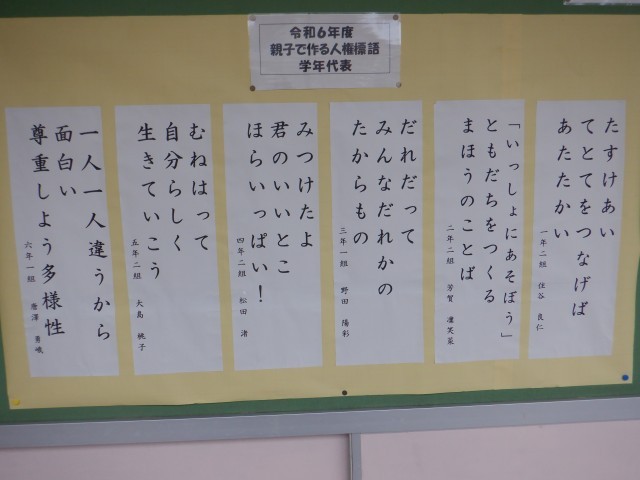 令和6年度
親子で作る人権標語
学年代表
たすけあい
てとてをつなげば
あたたかい
一年二組 住谷 良仁
「いっしょにあそぼう」
ともだちをつくる
まほうのことば
二年二組 芳賀 凛笑菜
だれだって
みんなだれかの
たからもの
三年一組 野田 陽彩
みつけたよ
君のいいとこ
ほらいっぱい!
四年二組 松田 渚
むねはって
自分らしく
生きていこう
五年二組 大島 桃子
一人一人違うから
面白い
尊重しよう多様性
六年一組 唐澤 勇颯